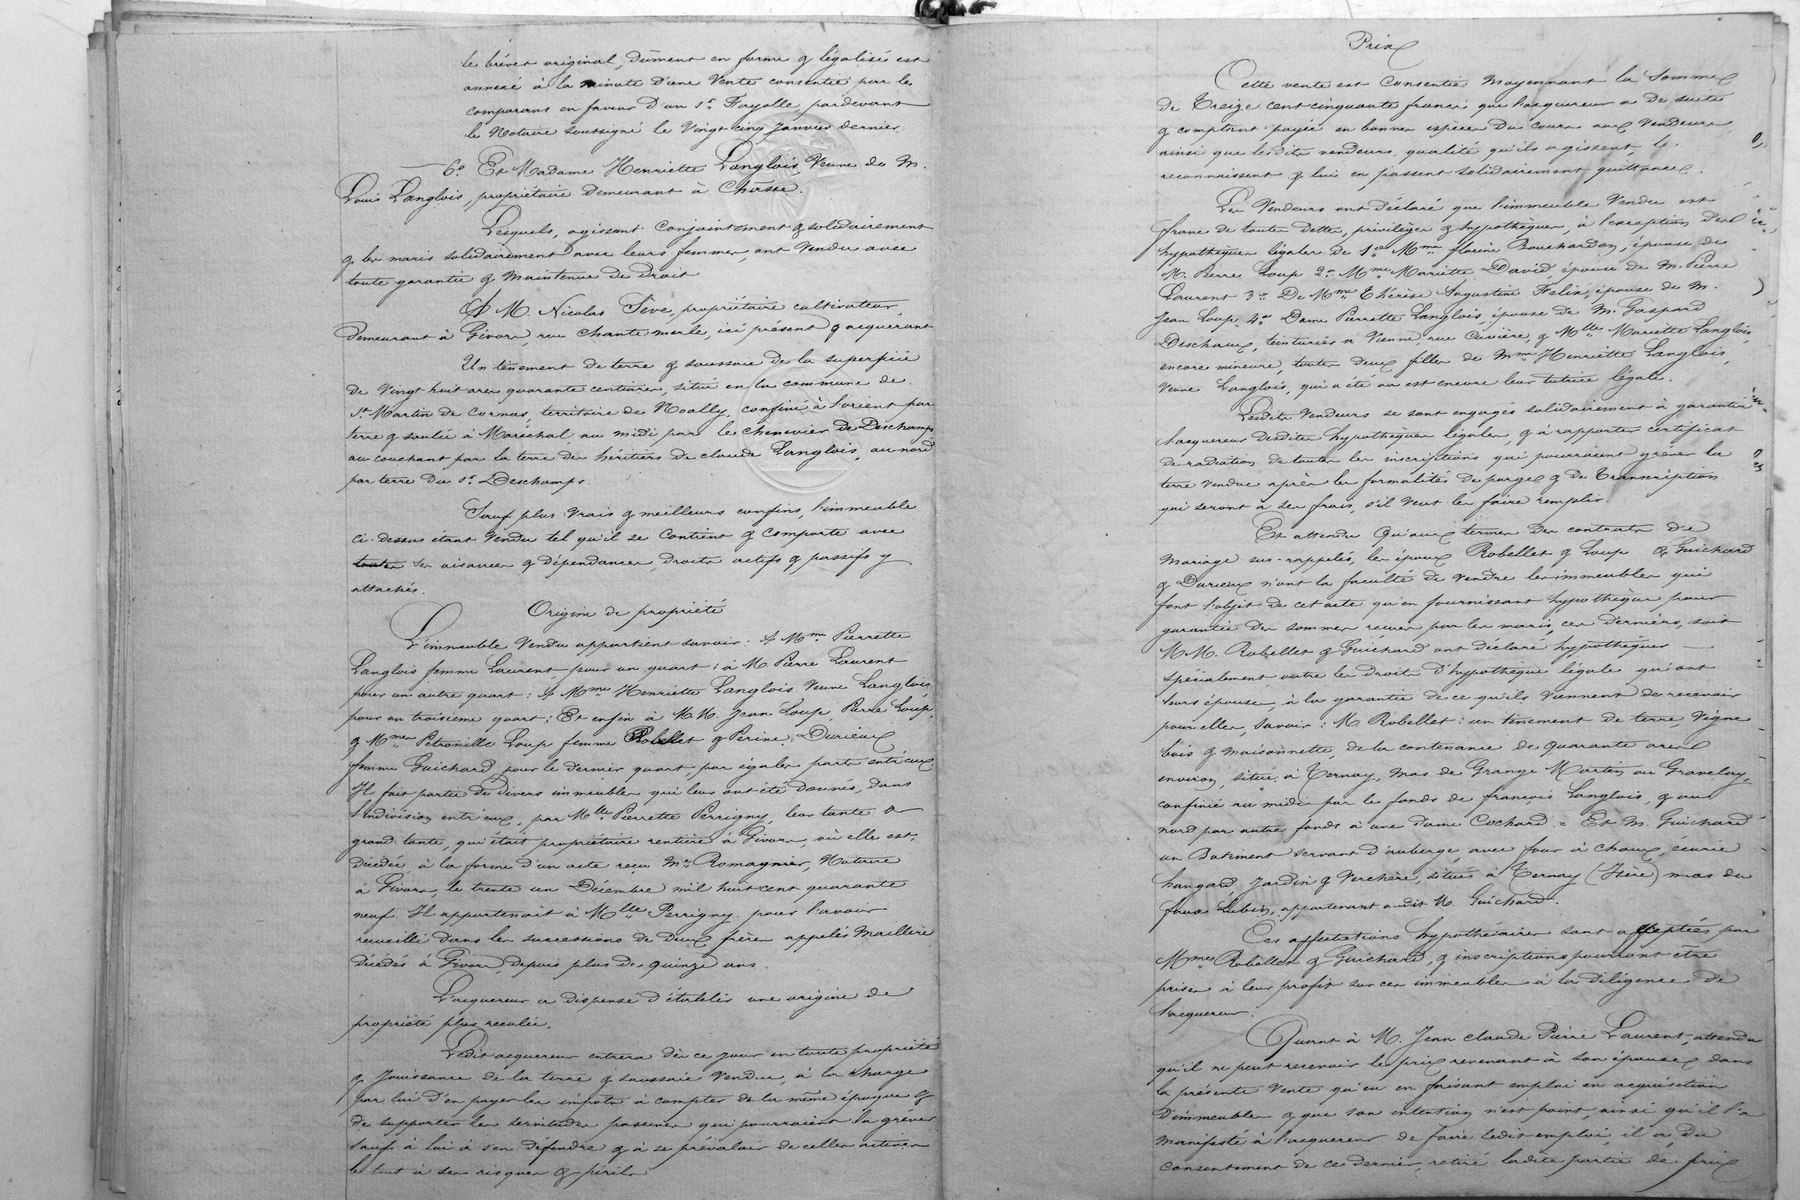 le brévet original, dûment en forme & légalisés est
annexé à la minute d'une Vente consentie par les
comparans en faveur d'un Sr. Fayolle pardevant
le Notaire soussigné le Vingt cinq Janvier dernier.
6o. Et Madame Henriette Langlois, Veuve de M.
Louis Langlois, propriétaire demeurant à Chasse.
Lesquels, agissant conjointement & solidairement
& les maris solidairement avec leurs femmes, ont Vendu avec
toute garantie & maintenue de droit
A M. Nicolas Sève, propriétaire cultivateur,
demeurant à Givors, rue Chante merle, ici présent & acquérant
Un tènement de terre & saussaie de la superficie
de Vingt huit ares quarante centiares, situé en la commune de
St. Martin de Cornas, territoire de Noally, confiné à l'orient par
terre & saulée à Maréchal, au midi par le chenevier de Deschamps
au couchant par la terre des héritiers de claude Langlois, au nord
par terre du Sr. Deschamps.
Sauf plus Vrais & meilleurs confins, l'immeuble
ci-dessus étant Vendu tel qu'il se contient & comporte avec
toutes ses aisances & dépendances, droits actifs & passifs y
attachés.
Origine de propriété
L'immeuble Vendu appartient savoir: A Mme Pierrette
Langlois femme Laurent, pour un quart: à M. Pierre Laurent
pour un autre quart: A Mme Henriette Langlois Veuve Langlois
pour un troisième quart: Et enfin à M.M. Jean Loup, Pierre Loup,
& Mmes Petronille Loup femme Robellet & Perine Durieux
femme Guichard, pour le dernier quart, par égales parts entr'eux.
Il fait partie de divers immeubles qui leur ont été donnés, dans
l'indivision entr'eux, par Mlle Pierrette Perrigny, leur tante ou
grand-tante, qui était propriétaire rentière à Givors, où elle est
décédée, à la forme d'un acte reçu Me Romagnier, Notaire
à Givors, le trente un Décembre mil huit cent quarante
neuf. Il appartenait à Mlle Perrigny pour l'avoir
recueilli dans les successions de deux frères appelés Maillere
décédés à Givors, depuis plus de quinze ans.
L'acquéreur a dispensé d'établir une origine de
propriété plus reculée.
Ledit acquéreur entrera dès ce jour en toute propriété
& jouissance de la terre & saussaie Vendue, à la charge
par lui d'en payer les impôts à compter de la même époque &
de supporter les servitudes passives qui pourraient la grever
sauf à lui à s'en défendre & à se prévaloir de celles actives
le tout à ses risques & périls
Prix
Cette vente est Consentie moyennant la Somme
de Treize cent cinquante francs que l'acquéreur a de suite
& comptant payée en bonnes espèces du cours aux Vendeurs
ainsi que lesdits vendeurs, qualité qu'ils agissent, le
reconnaissent & lui en passent solidairement quittance.
Les Vendeurs ont déclaré que l'immeuble Vendu est
franc de toutes dettes, privilèges & hypothèques, à l'exception des
hypothèques légales de 1o. Mme fleurie Bouchardon, épouse de
M. Pierre Loup 2o. Mme Mariette David, épouse de M. Pierre
Laurent 3o. De Mme Thérèse Augustine Felix, épouse de M.
Jean Loup, 4o. Dame Pierrette Langlois, épouse de M. Gaspard
Deschaux, teinturier à Vienne rue Cuvière, & Mlle Mariette Langlois,
encore mineure, toutes deux filles de Mme Henriette Langlois,
Veuve Langlois, qui a été ou est encore leur tutrice légale.
Lesdits Vendeurs se sont engagés solidairement à garantir
l'acquéreur desdites hypothèques légales, & à rapporter certificat
de radiation de toutes les inscriptions qui pourraient grever la
terre Vendue après les formalités de purge & de transcription
qui seront à ses frais, s'il veut les faire remplir.
Et attendu qu'aux termes des contrats de
mariage sus-rappelés, les époux Robellet & Loup & Guichard
& Durieux n'ont la faculté de vendre les immeubles qui
font l'objet de cet acte qu'en fournissant hypothèque pour
garantie des sommes reçues par les maris, ces derniers, soit
M.M. Robellet & Guichard ont déclaré hypothéquer
spécialement, outre les droits d'hypothèque légale qu'ont
leurs épouses, à la garantie de ce qu'ils viennent de recevoir
pour elles, savoir: M. Robellet: un tènement de terre, Vigne
bois & maisonnette, de la contenance de quarante ares
environ, situé à Ternay, mas de Grange Martin ou Gravelay,
confiné au midi par le fonds de françois Langlois, & au
nord par autre fonds à une dame Cochard = Et M. Guichard
un Batiment servant d'auberge, avec four à chaux, écurie
hangard, Jardin & Verchère, situés à Ternay (Isère) mas du
Lubin, appartenant audit M. Guichard.
Ces affectations hypothécaires sont acceptées par
Mmes Robellet & Guichard, & inscriptions pourront être
prises à leur profit sur ces immeubles à la diligence de
l'acquéreur.
Quant à M. Jean Claude Pierre Laurent, attendu
qu'il ne peut recevoir le prix revenant à son épouse dans
la présente Vente qu'en en faisant emploi en acquisition
d'immeubles & que son intention n'est point, ainsi qu'il l'a
manifesté à l'acquéreur de faire ledit emploi, il a, du
consentement de ce dernier, retiré ladite partie de prix